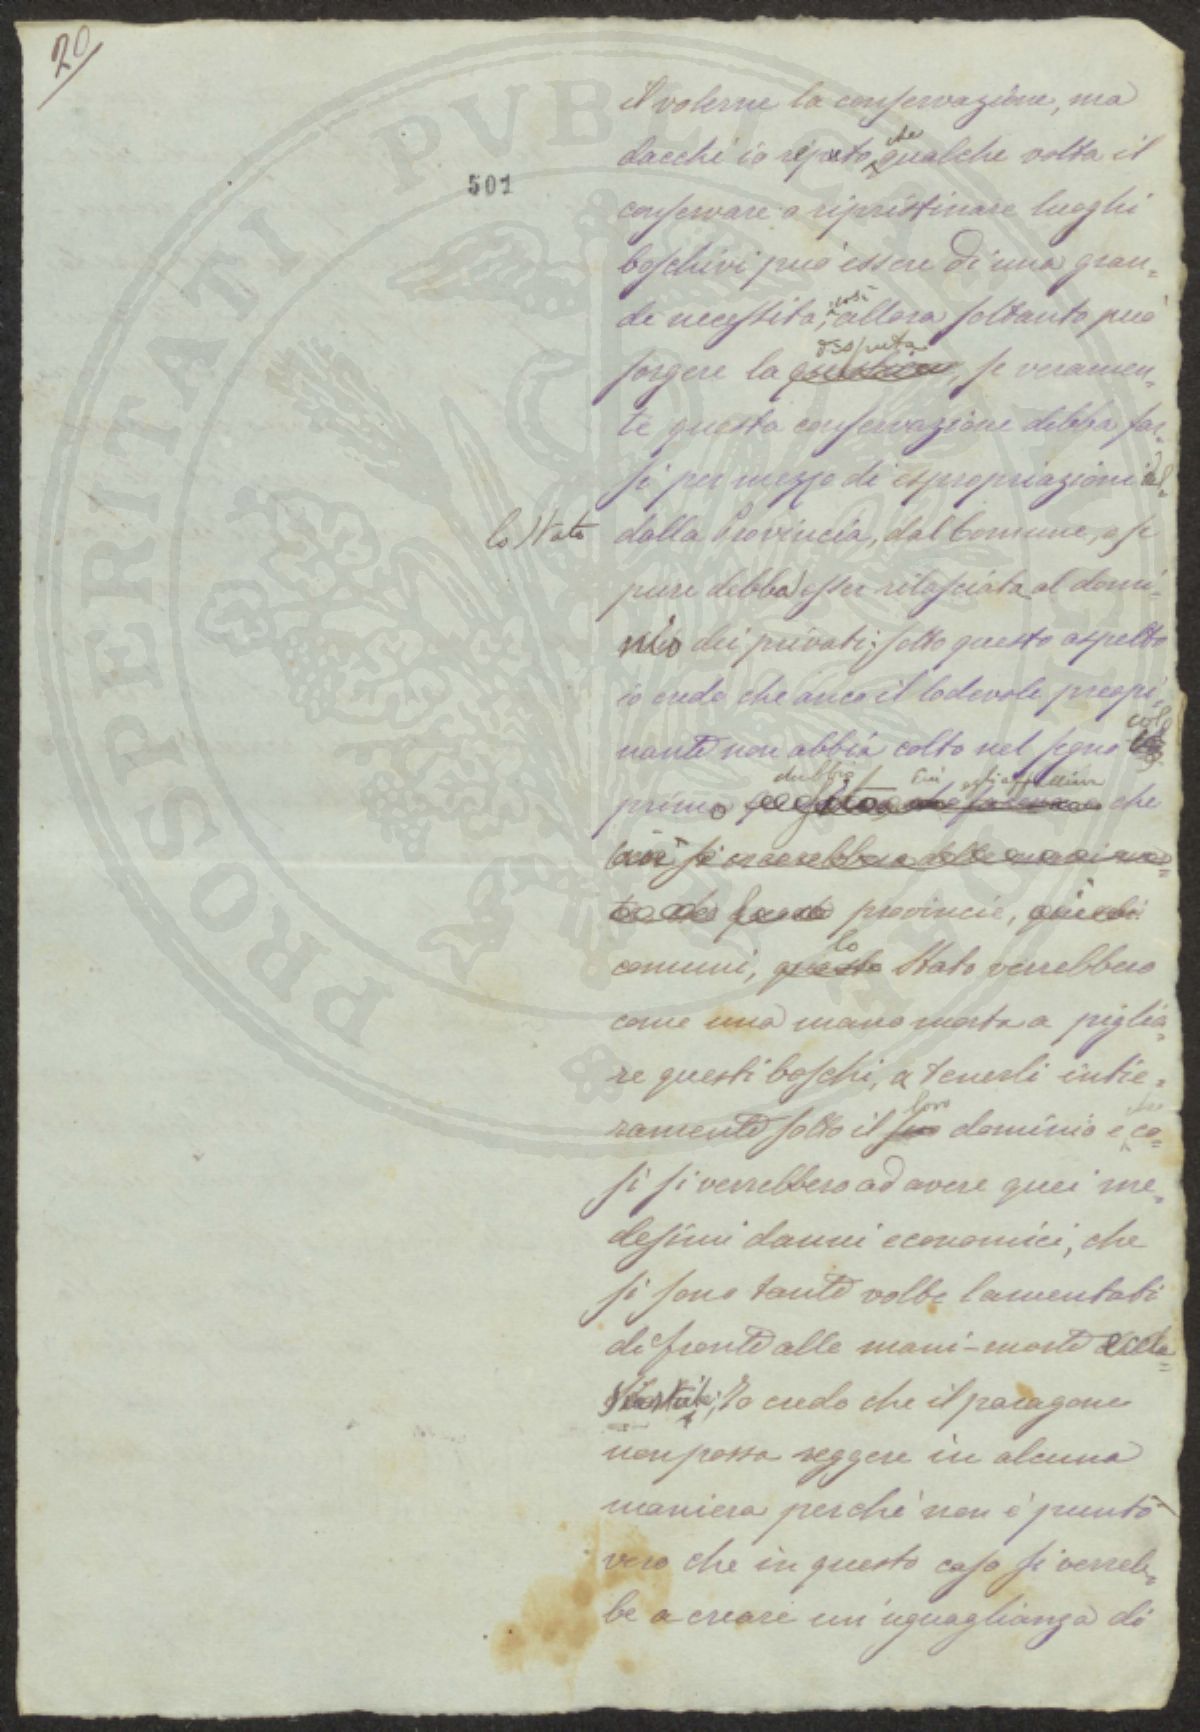 20
501
PROSPERITATI PVBLICAE
il volerne la conservazione, ma
dacchè io reputo che qualche volta il
conservare o ripristinare luoghi
boschivi può essere di una gran-
de necessità, così allora soltanto può
sorgere la disputa questione, se veramen-
te questa conservazione debba far-
si per mezzo di espropriazioni dal-
lo Stato dalla Provincia, dal Comune, o se
pure debba esser rilasciata al domi-
nio dei privati; sotto questo aspetto
io credo che anco il lodevole preopi-
nante non abbia colto nel segno col
primo dubbio che
provincie,
comuni, lo Stato verrebbero
come una mano morta a piglia-
re questi boschi, a tenerli intie-
ramente sotto il loro suo dominio e co-
sì si verrebbero ad avere quei me-
desimi danni economici, che
si sono tante volte lamentati
di fronte alle mani-morte eccle-
Io credo che il paragone
non possa reggere in alcuna
maniera perchè non è punto
vero che in questo caso si verreb-
be a creare un'uguaglianza di